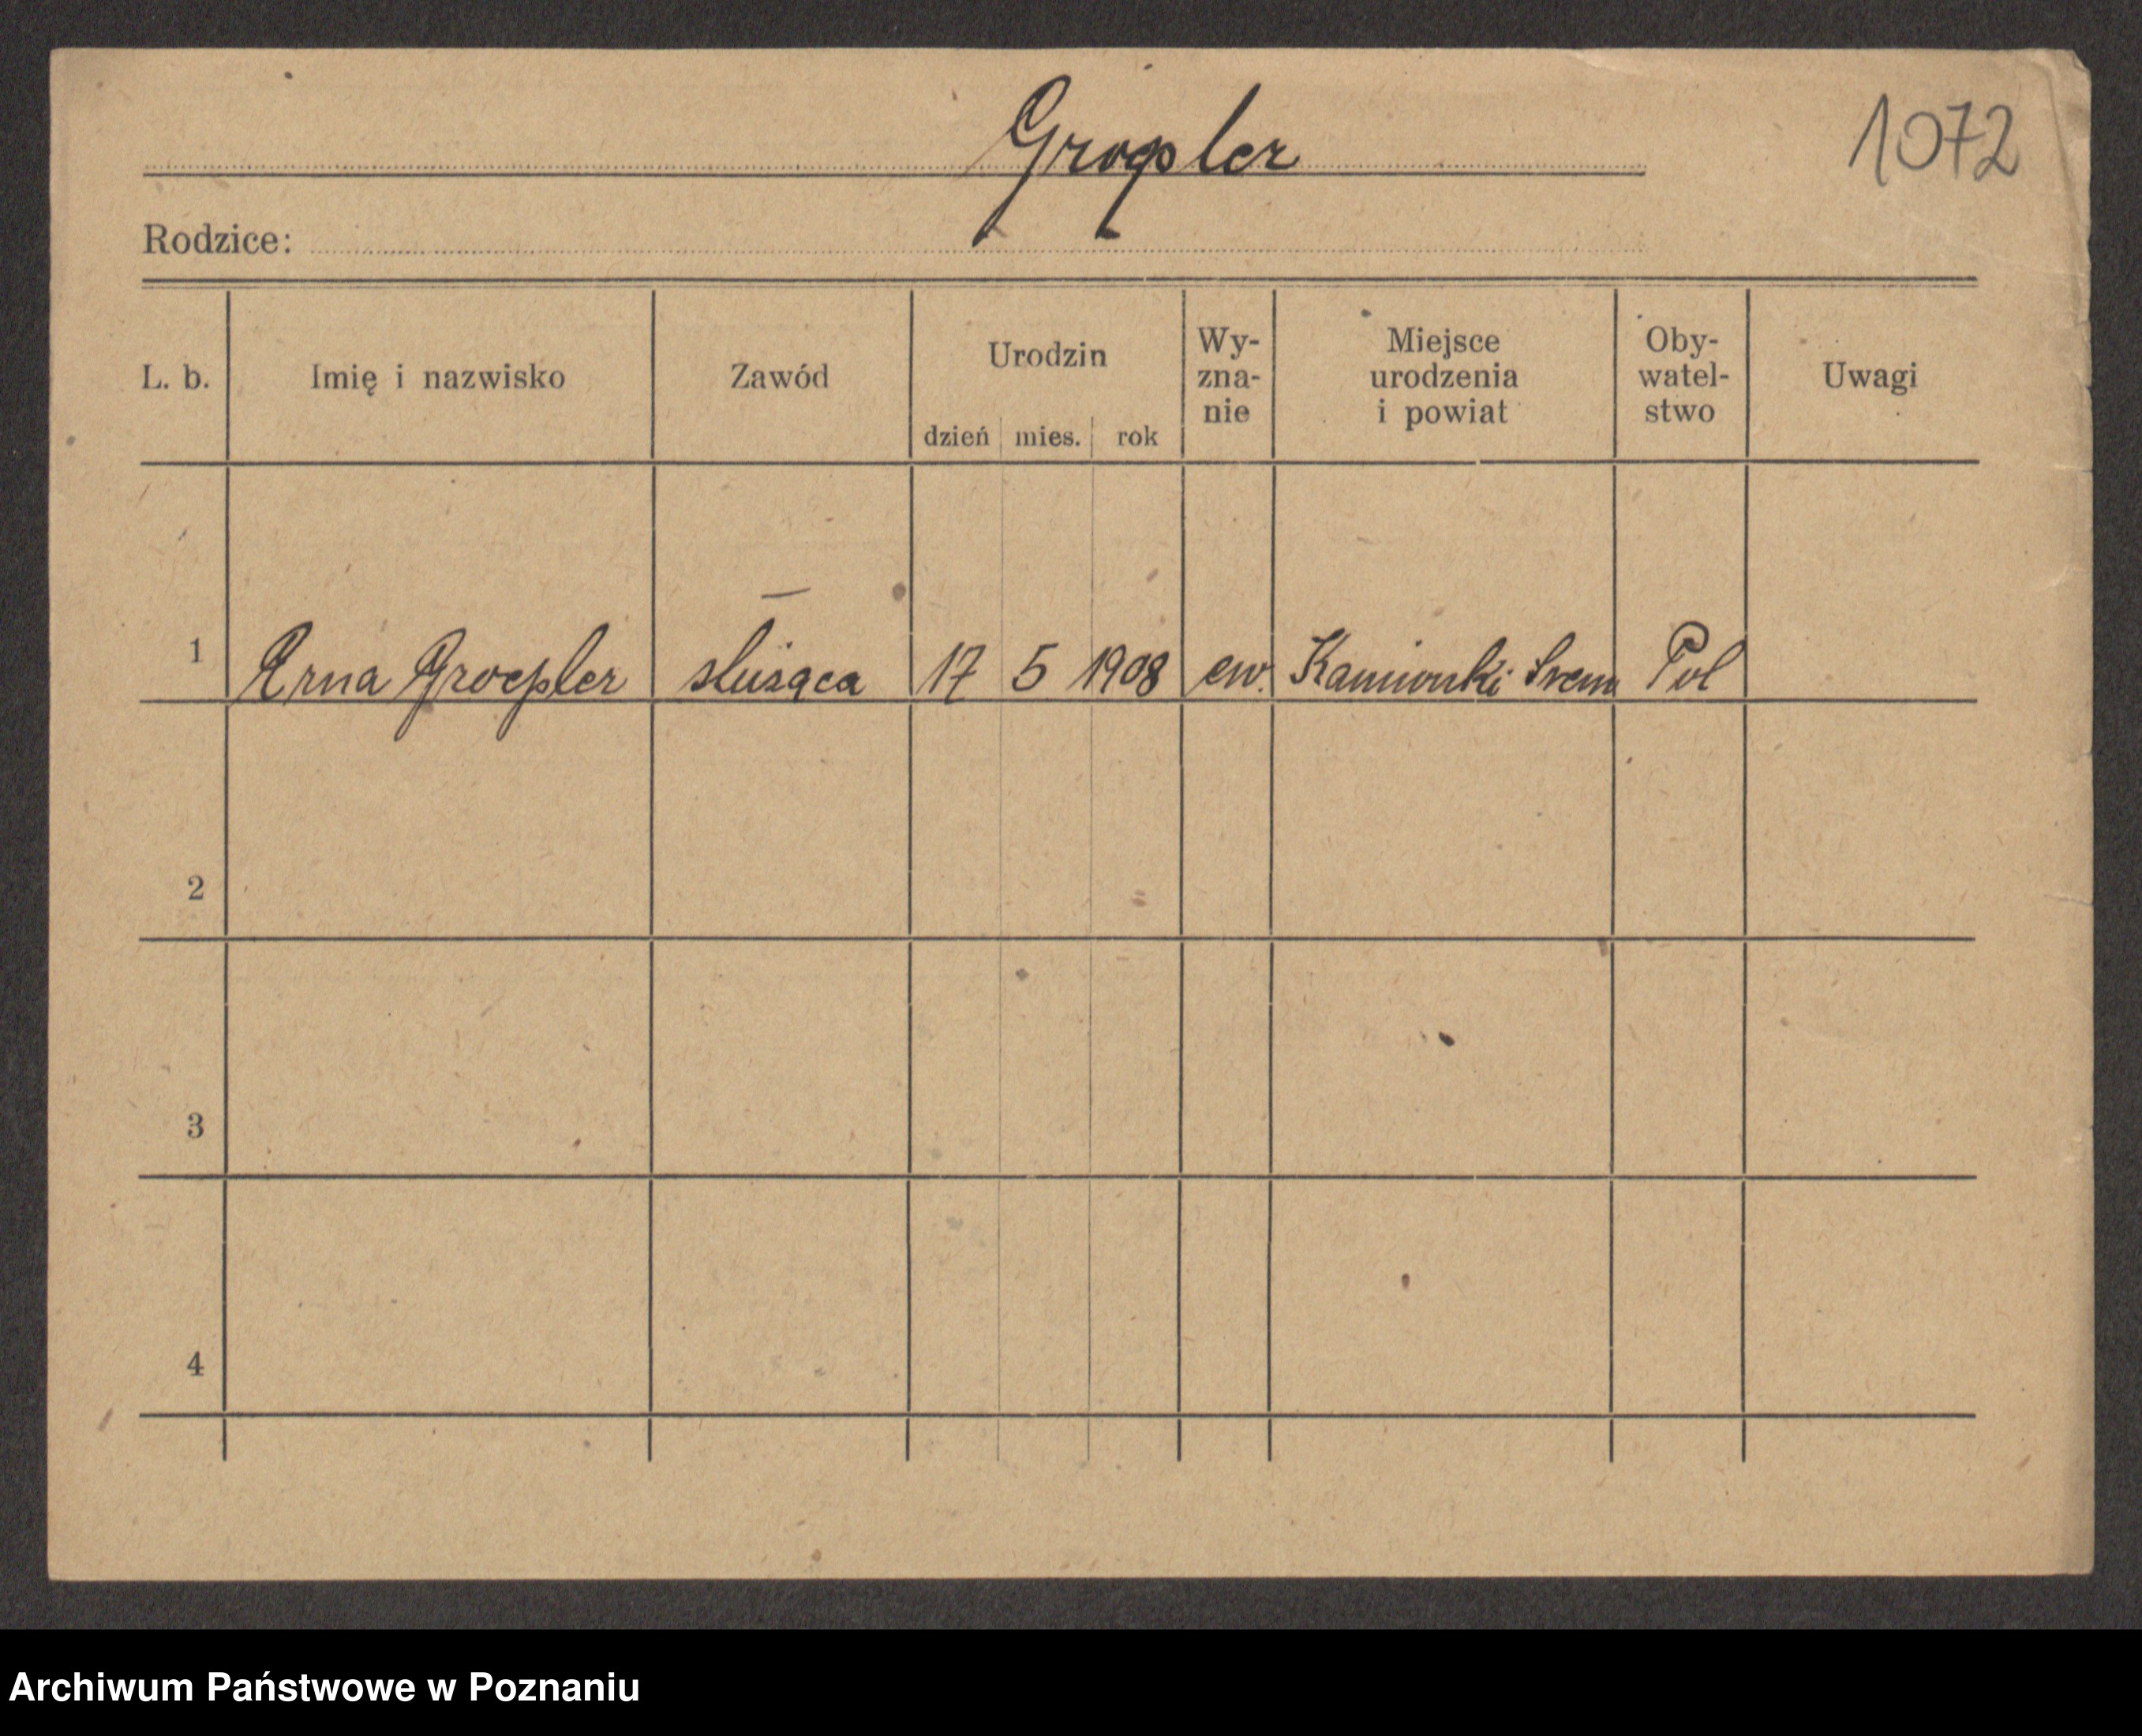 Groepler
1072
Rodzice:
L. b. Imię i nazwisko Zawód Urodzin dzień mies. rok Wy-zna-nie Miejsce urodzenia i powiat Oby-watel-stwo Uwagi
1 Erna Groepler służąca 17 5 1908 ew. Kamionki Srem Pol
2
3
4
Archiwum Państwowe w Poznaniu